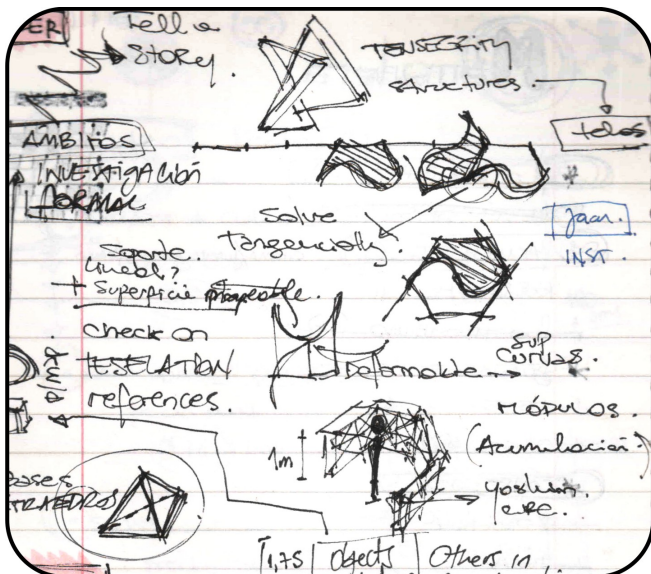 ER
Tell a
Story.
TENSEGRITY
structures.
telos
ÁMBITOS
INVESTIGACIÓN
FORMAL
Solve
Tangencially.
Joan.
INST.
Soporte.
Lineal?
+ Superficie
Check on
TESELATION
references.
Deformable.
Sup
Curvas.
MÓDULOS.
(Acumulación.)
1m
Bases
TRAEDROS
1,75 | Objects | Others in